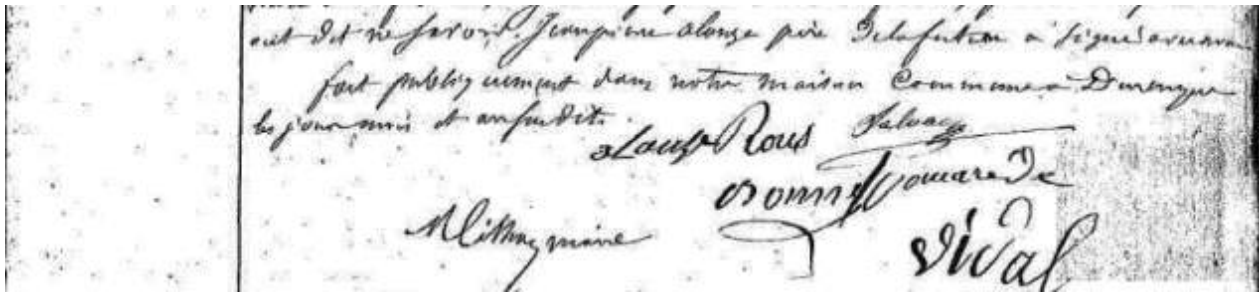 ont dit ne savoir. Jeanpierre alauze père de la future a signé avec nous
fait publiquement dans notre maison Commune a Durenque
les jour mois et an susdits.
alauze Rous Salvage
Bonnef Vomarede
maire
Vidal